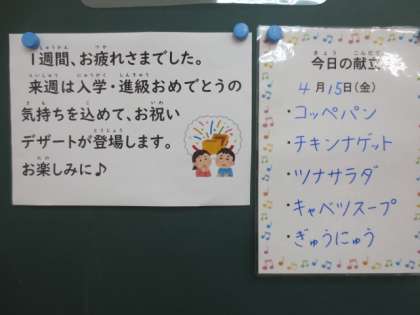 1週間、お疲れさまでした。
来週は入学・進級おめでとうの
気持ちを込めて、お祝い
デザートが登場します。
お楽しみに♪
今日の献立
4月15日(金)
・コッペパン
・チキンナゲット
・ツナサラダ
・キャベツスープ
・ぎゅうにゅう